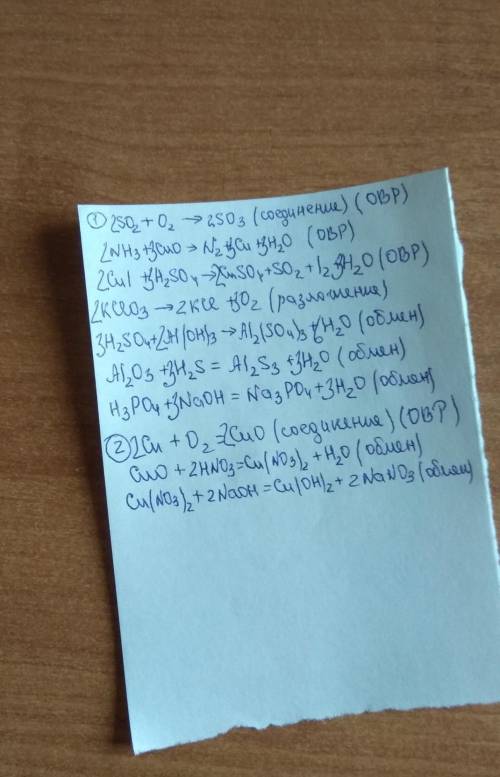 ① 2SO₂ + O₂ → 2SO₃ (соединение) (ОВР)
2NH₃+3CuO → N₂+3Cu+3H₂O (ОВР)
2CuI +3H₂SO₄→2CuSO₄+SO₂ + I₂+3H₂O (ОВР)
2KClO₃ → 2KCl +3O₂ (разложение)
3H₂SO₄+2Al(OH)₃→Al₂(SO₄)₃+6H₂O (обмен)
Al₂O₃ +3H₂S = Al₂S₃ +3H₂O (обмен)
H₃PO₄+3NaOH = Na₃PO₄+3H₂O (обмен)
② 2Cu + O₂ =2CuO (соединение) (ОВР)
CuO + 2HNO₃=Cu(NO₃)₂ +H₂O (обмен)
Cu(NO₃)₂+2NaOH=Cu(OH)₂+2NaNO₃ (обмен)